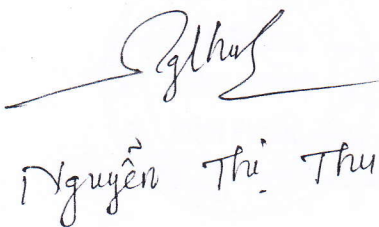 Nguyễn Thị Thu